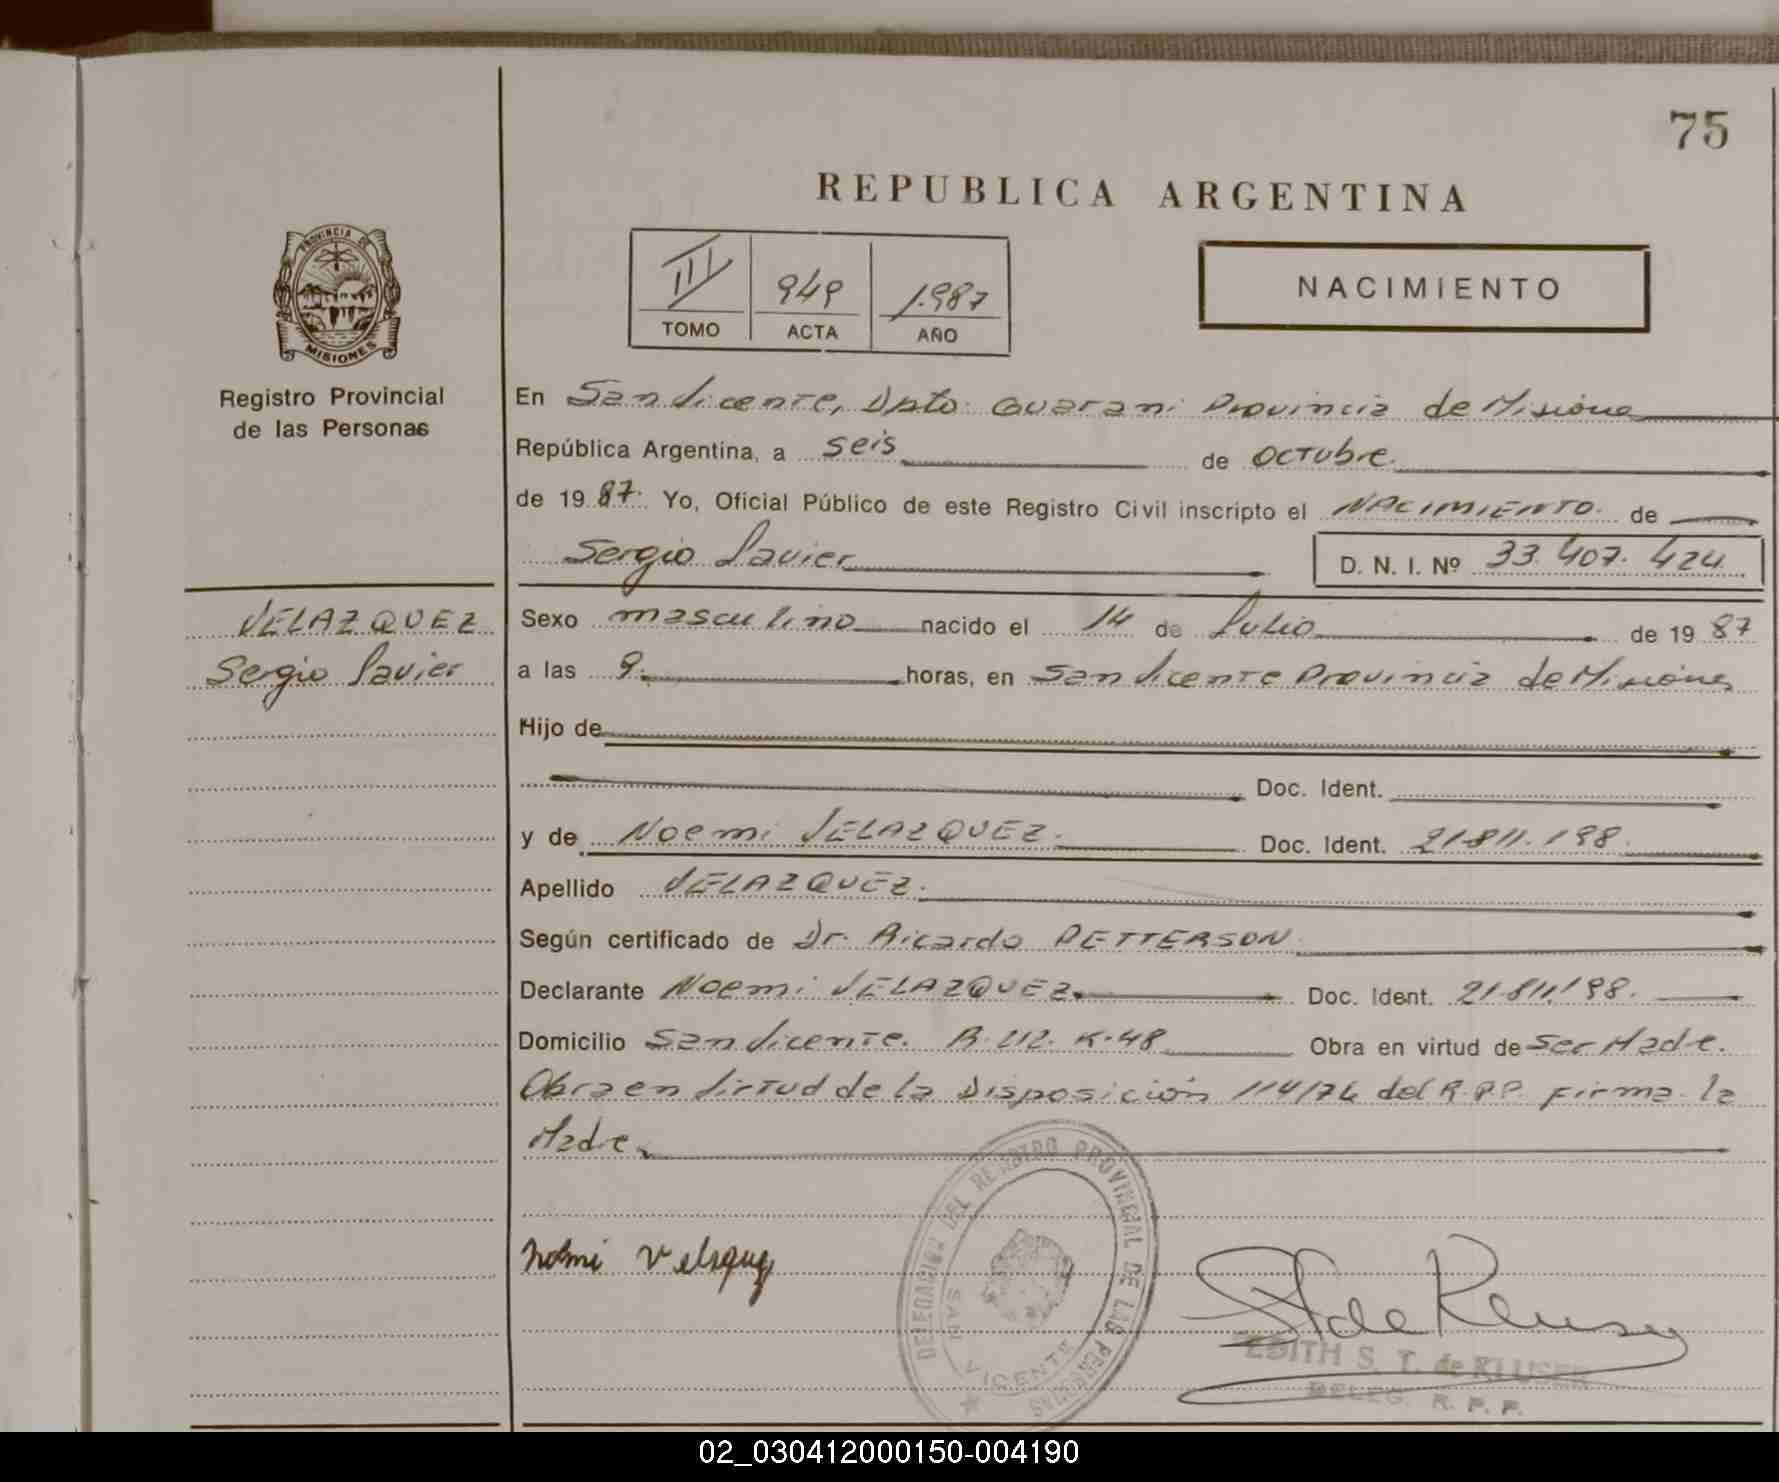 75
REPUBLICA ARGENTINA
PROVINCIA DE
MISIONES
III 949 1.987
TOMO ACTA AÑO
NACIMIENTO
Registro Provincial
de las Personas
En San Vicente, Dpto. Guarani Provincia de Misiones
República Argentina, a seis de octubre.
de 19 87. Yo, Oficial Público de este Registro Civil inscripto el NACIMIENTO. de
Sergio Javier D. N. I. Nº 33.407.424
VELAZQUEZ
Sergio Javier
Sexo masculino nacido el 14 de Julio de 19 87
a las 9. horas, en San Vicente Provincia de Misiones
Hijo de
Doc. Ident.
y de Noemi VELAZQUEZ. Doc. Ident. 21.811.198.
Apellido VELAZQUEZ.
Según certificado de Dr. Ricardo PETTERSON
Declarante Noemi VELAZQUEZ. Doc. Ident. 21.811.198.
Domicilio San Vicente. K.48 Obra en virtud de Ser Madre.
Obra en Virtud de la Disposición 114/76 del R.P.P. Firma la
Madre.
DELEGACION DEL REGISTRO PROVINCIAL DE LAS PERSONAS
SAN VICENTE
EDITH S. T. de KLUSER
DELEG. R. P. P.
02_030412000150-004190